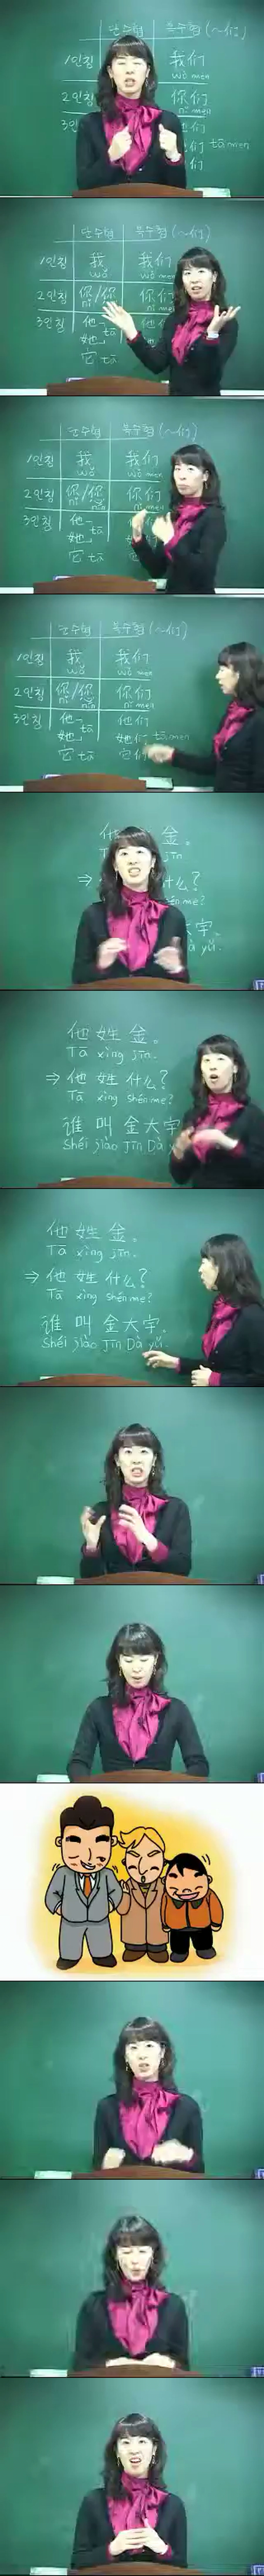 단수형 복수형 (~们)
1인칭 我们
wǒ men
2인칭 你们
nǐ men
3인칭 们
们 tāmen
们
단수형 복수형 (~们)
1인칭 我 我们
wǒ wǒ men
2인칭 你/您 你们
nǐ nǐ men
3인칭 他 他
她 tā
它 tā
단수형 복수형 (~们)
1인칭 我 我们
wǒ wǒ men
2인칭 你/您 你们
nǐ nín nǐ men
3인칭 他
她 tā
它 tā
단수형 복수형 (~们)
1인칭 我 我们
wǒ wǒ men
2인칭 你/您 你们
nǐ nín nǐ men
3인칭 他 他们
她 tā 她们 tāmen
它 tā 它们
他 金。
T jīn.
⇒ 什么?
shénme?
大宇。
à yǔ.
他 姓 金。
Tā xìng jīn.
⇒ 他 姓 什么?
Tā xìng shénme?
谁 叫 金大宇
Shéi jiào Jīn Dà y
他 姓 金。
Tā xìng jīn.
⇒ 他 姓 什么?
Tā xìng shénme?
谁 叫 金大宇.
Shéi jiào Jīn Dà yǔ.